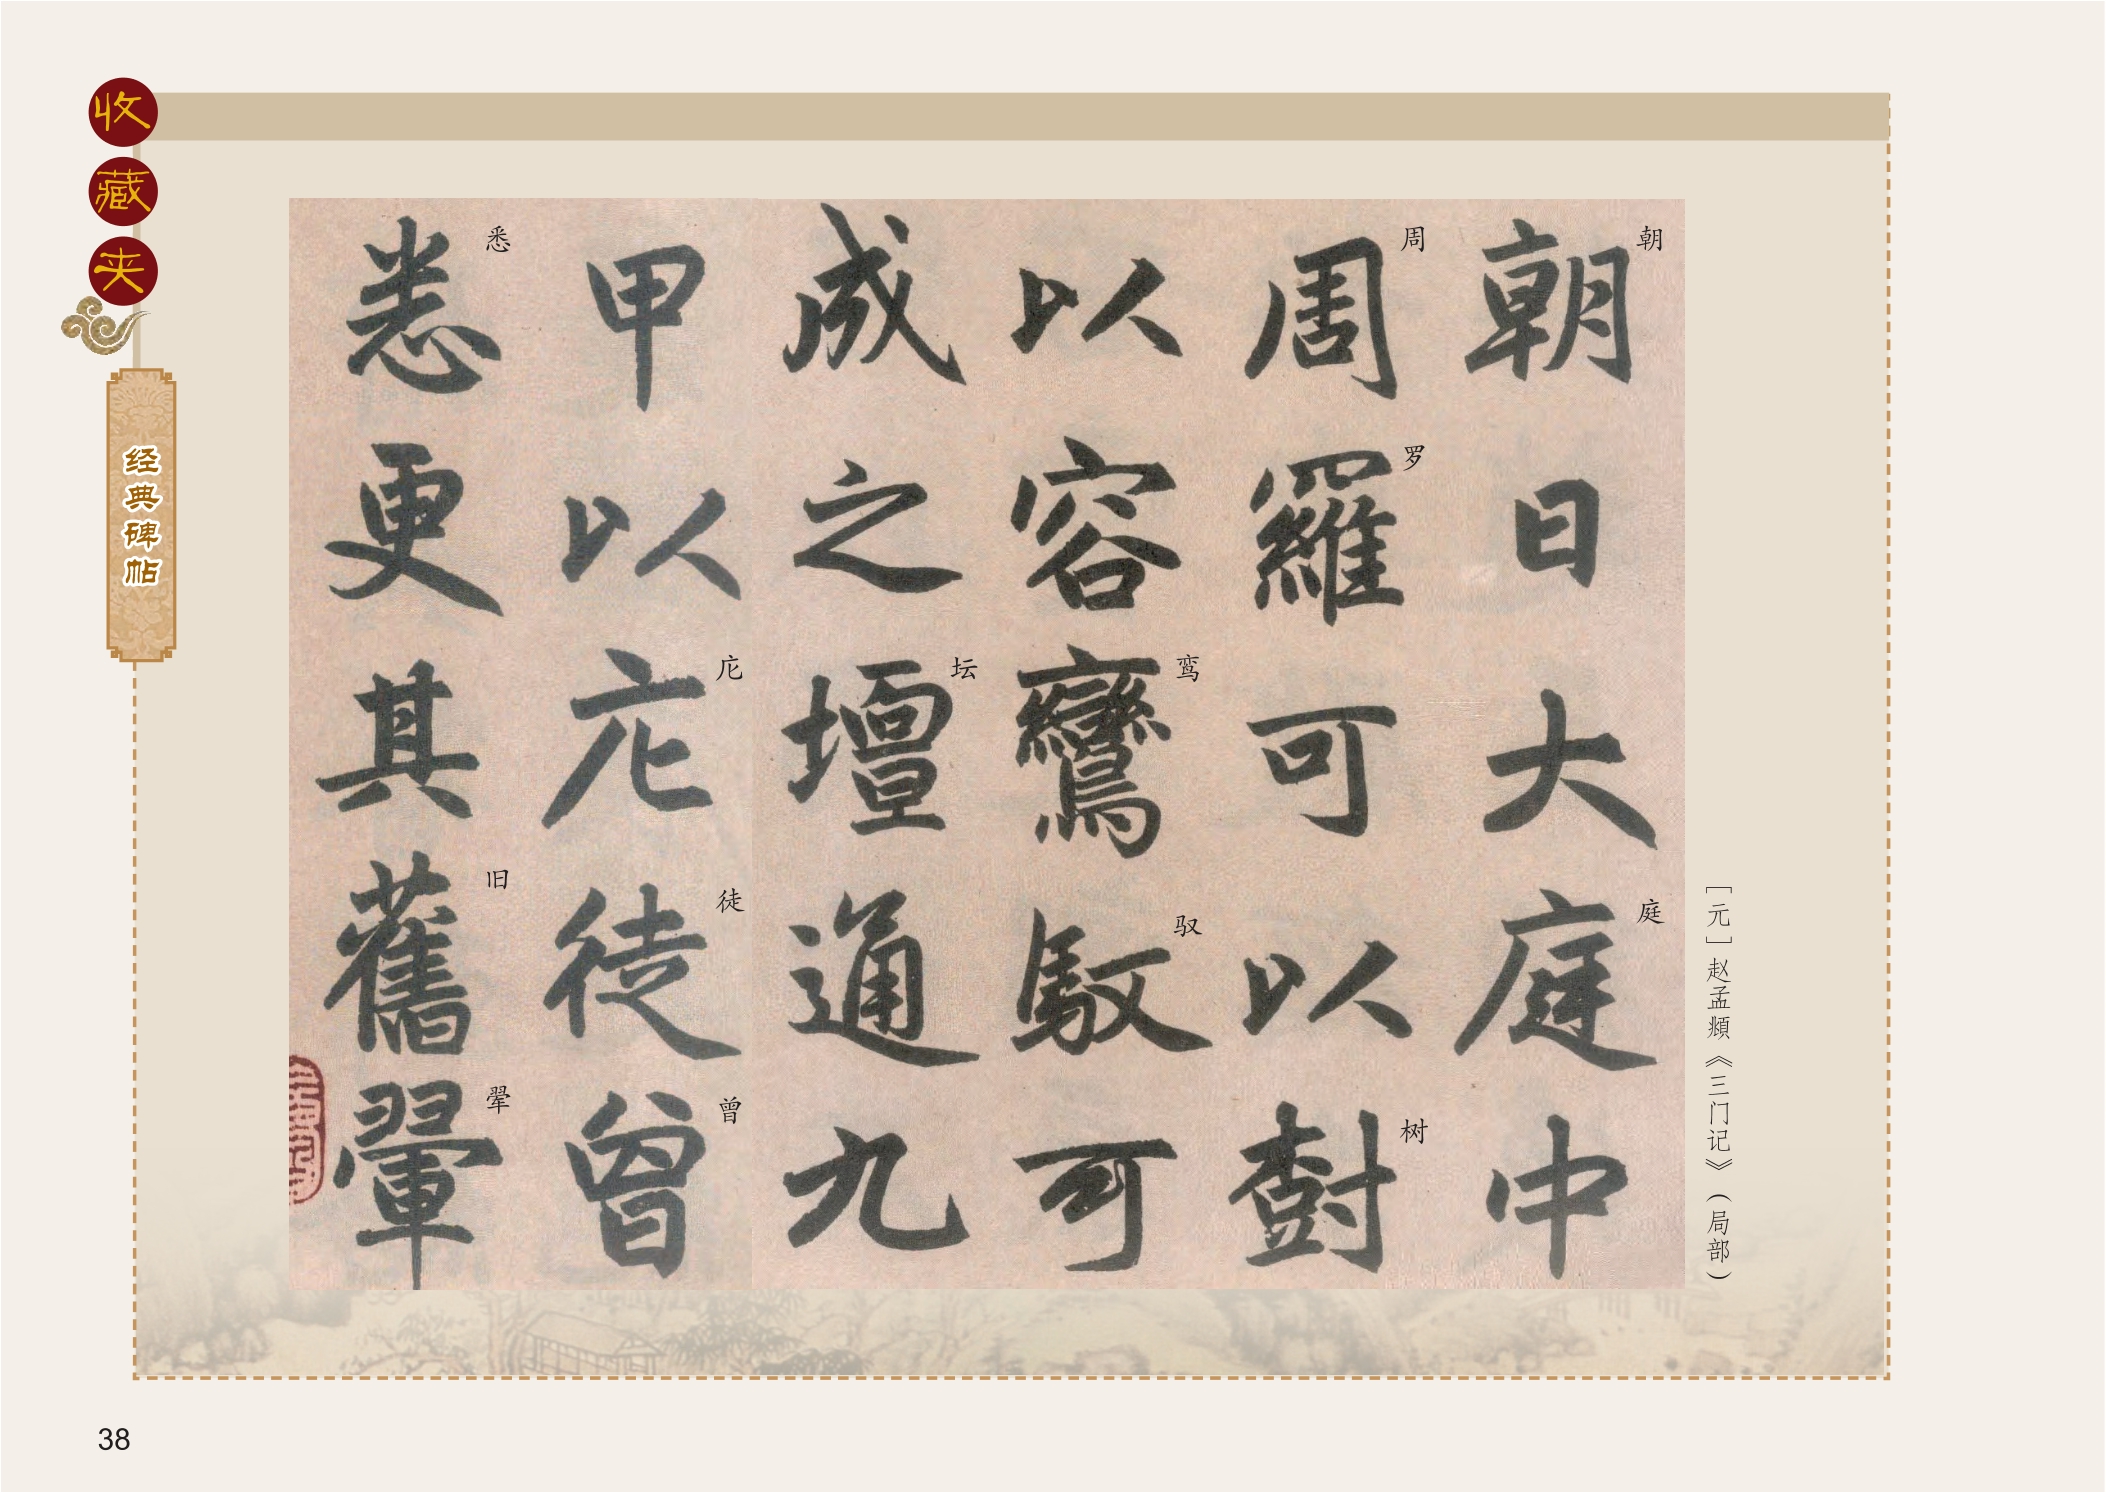 收藏夹
经典碑帖
朝日大庭中
朝
庭
周羅可以樹
周
罗
树
以容鸞馭可
鸾
驭
成之壇通九
坛
甲以庀徒曾
庀
徒
曾
悉更其舊翬
悉
旧
翚
［元］赵孟頫《三门记》（局部）
38